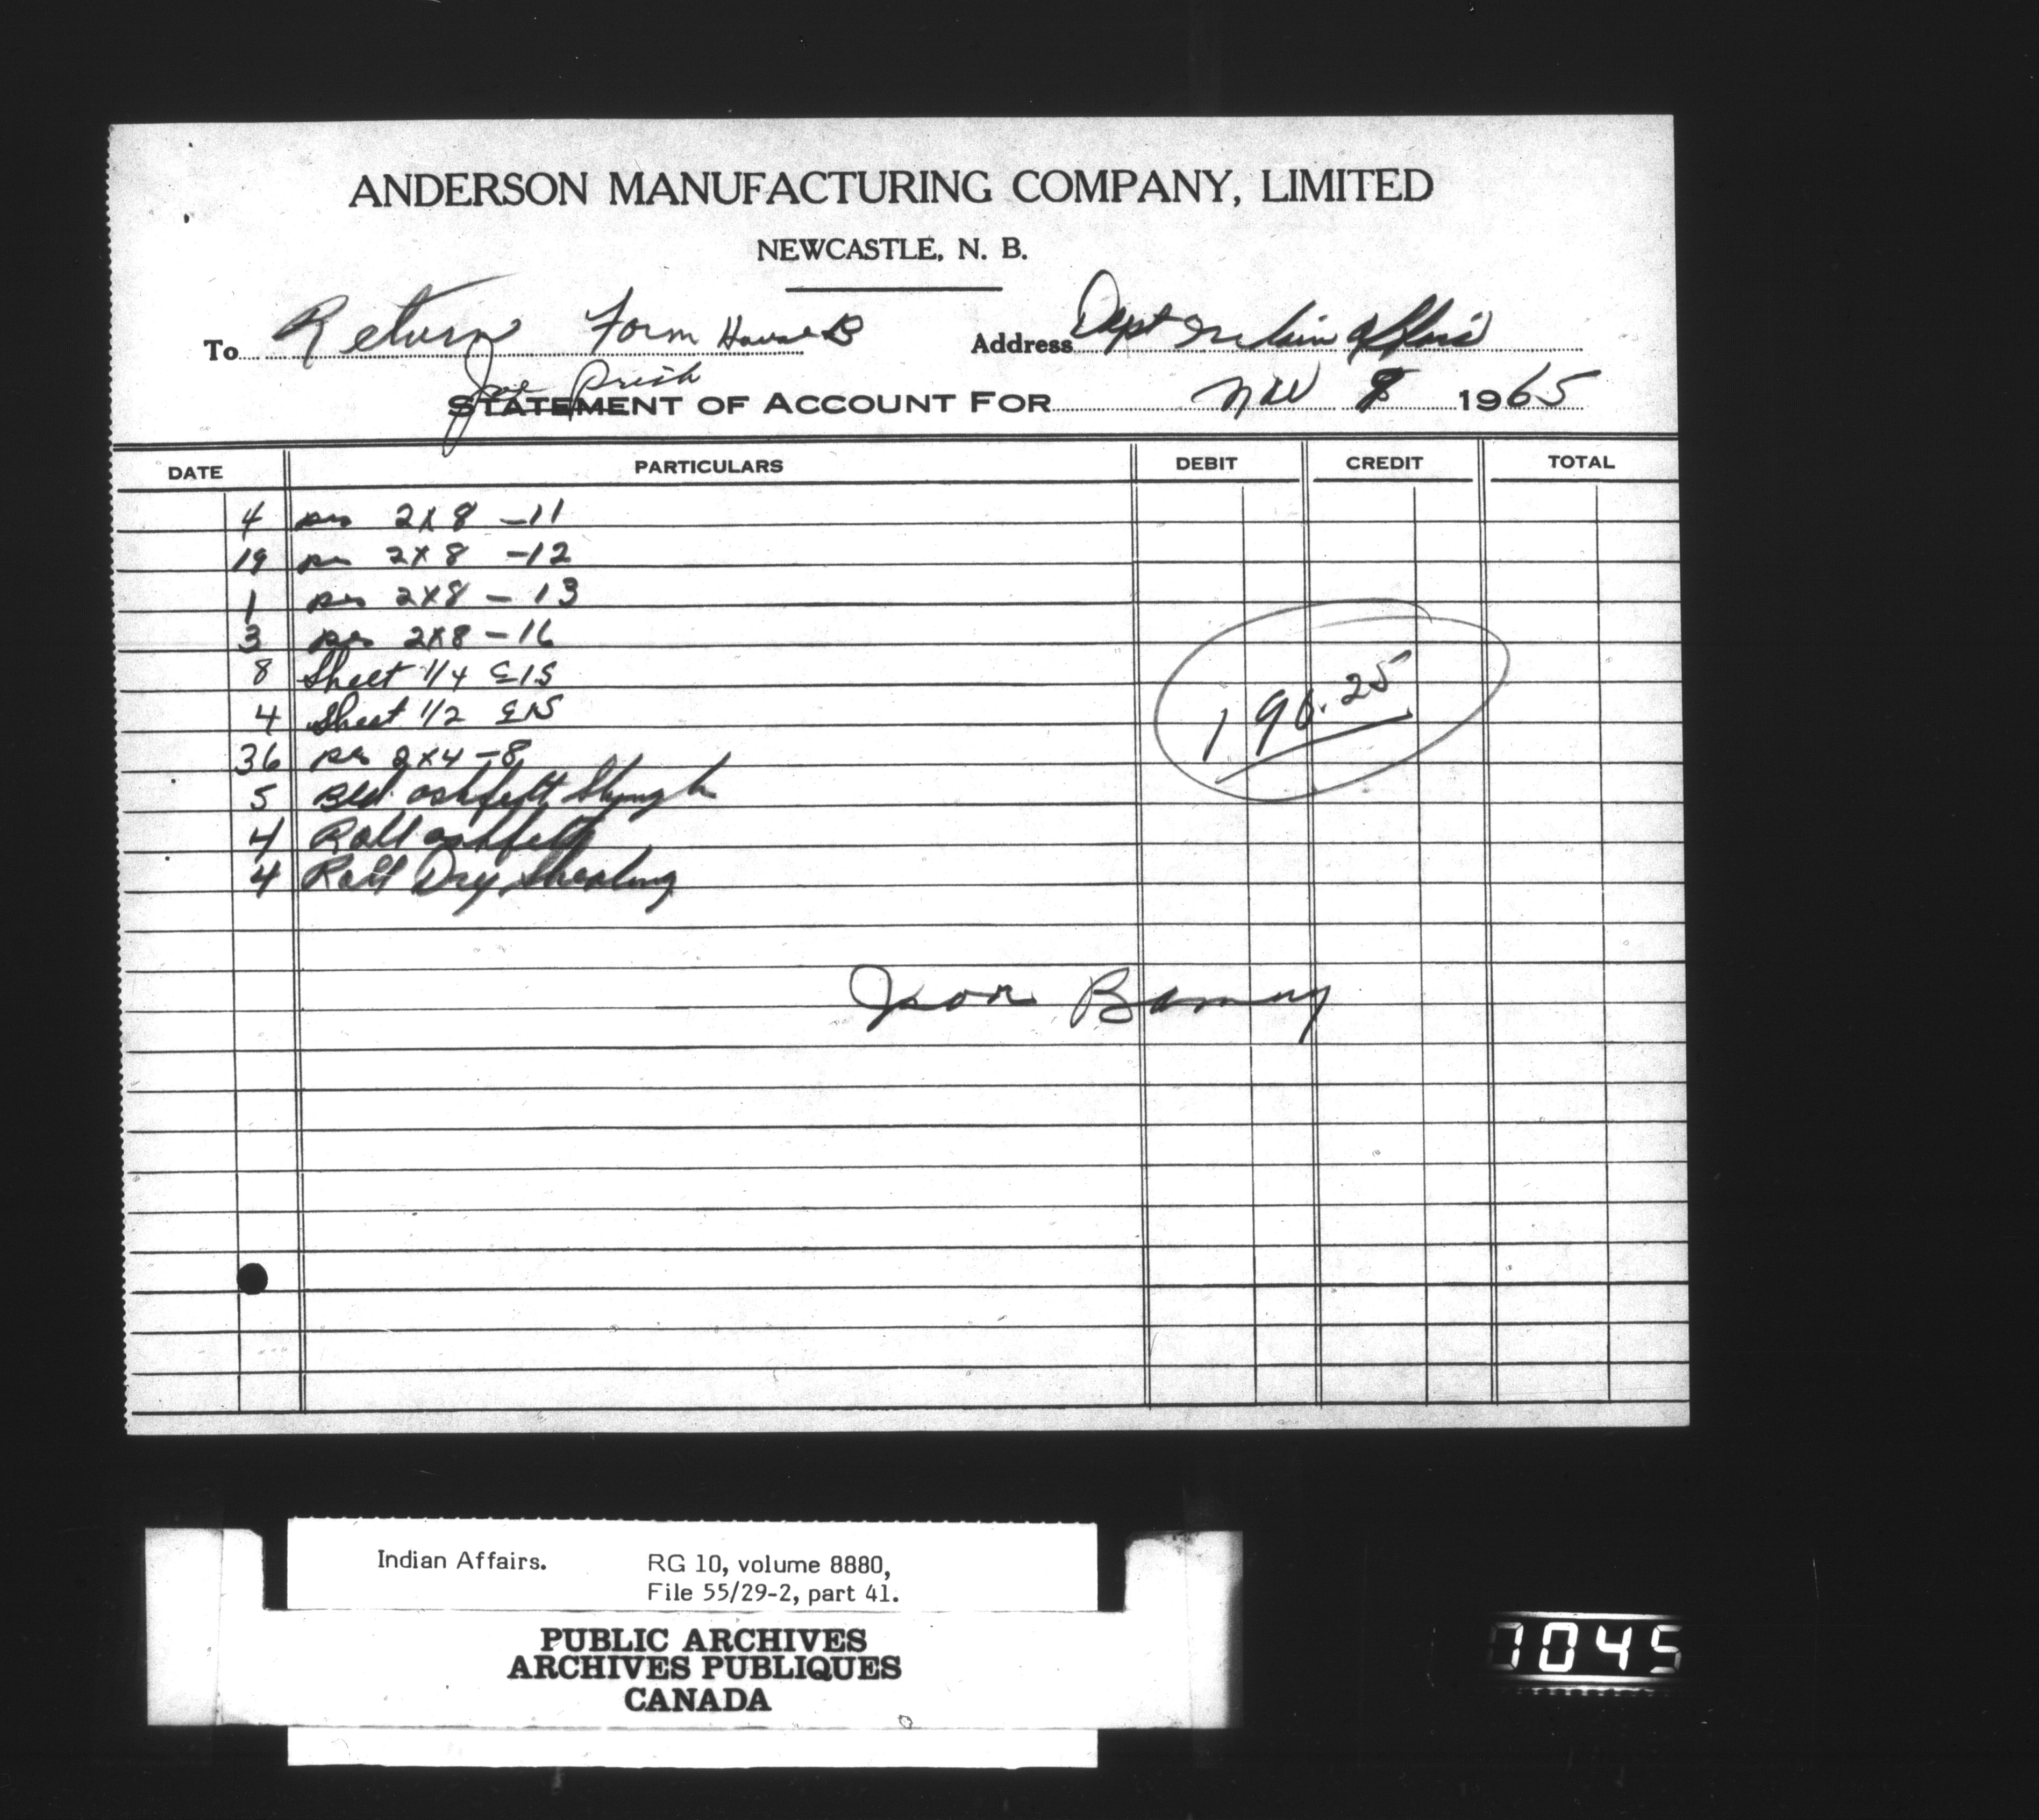 ANDERSON MANUFACTURING COMPANY, LIMITED
NEWCASTLE, N. B.
To Return Form House B Address Dept Indian Affairs
Joe
STATEMENT OF ACCOUNT FOR Nov 8 1965
DATE PARTICULARS DEBIT CREDIT TOTAL
4 pcs 2x8 -11
19 pcs 2x8 -12
1 pcs 2x8 - 13
3 pcs 2x8 - 16
8 Sheet 1/4 G1S
4 Sheet 1/2 G1S
36 pcs 2x4 - 8
5 Bld. ashfelt
4 Roll ashfelt
4 Roll Dry
196.25
Indian Affairs. RG 10, volume 8880,
File 55/29-2, part 41.
PUBLIC ARCHIVES
ARCHIVES PUBLIQUES
CANADA
7045